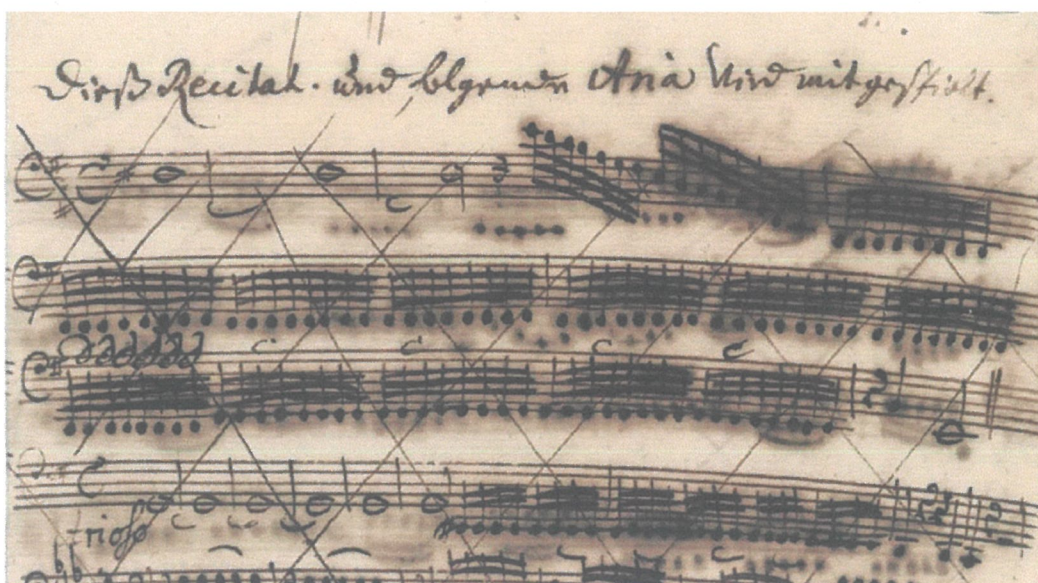 Dieß Recitat. und folgende Aria wird mitgespielt.